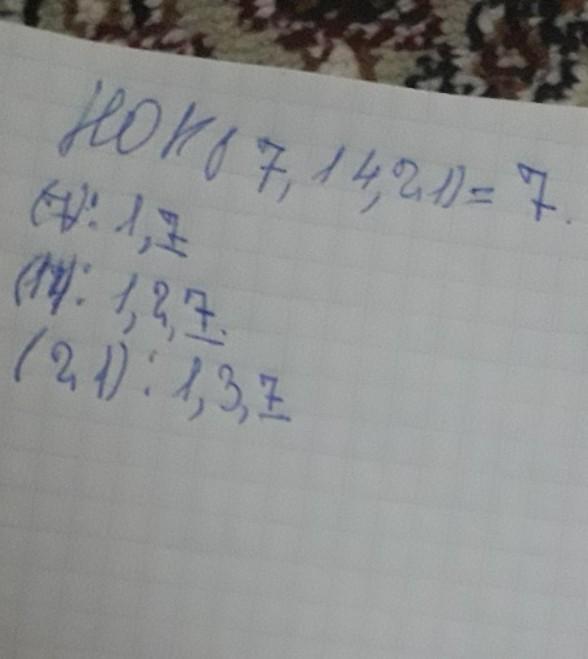 НОК(7, 14, 21) = 7.
(7): 1, 7
(14): 1, 2, 7.
(21): 1, 3, 7